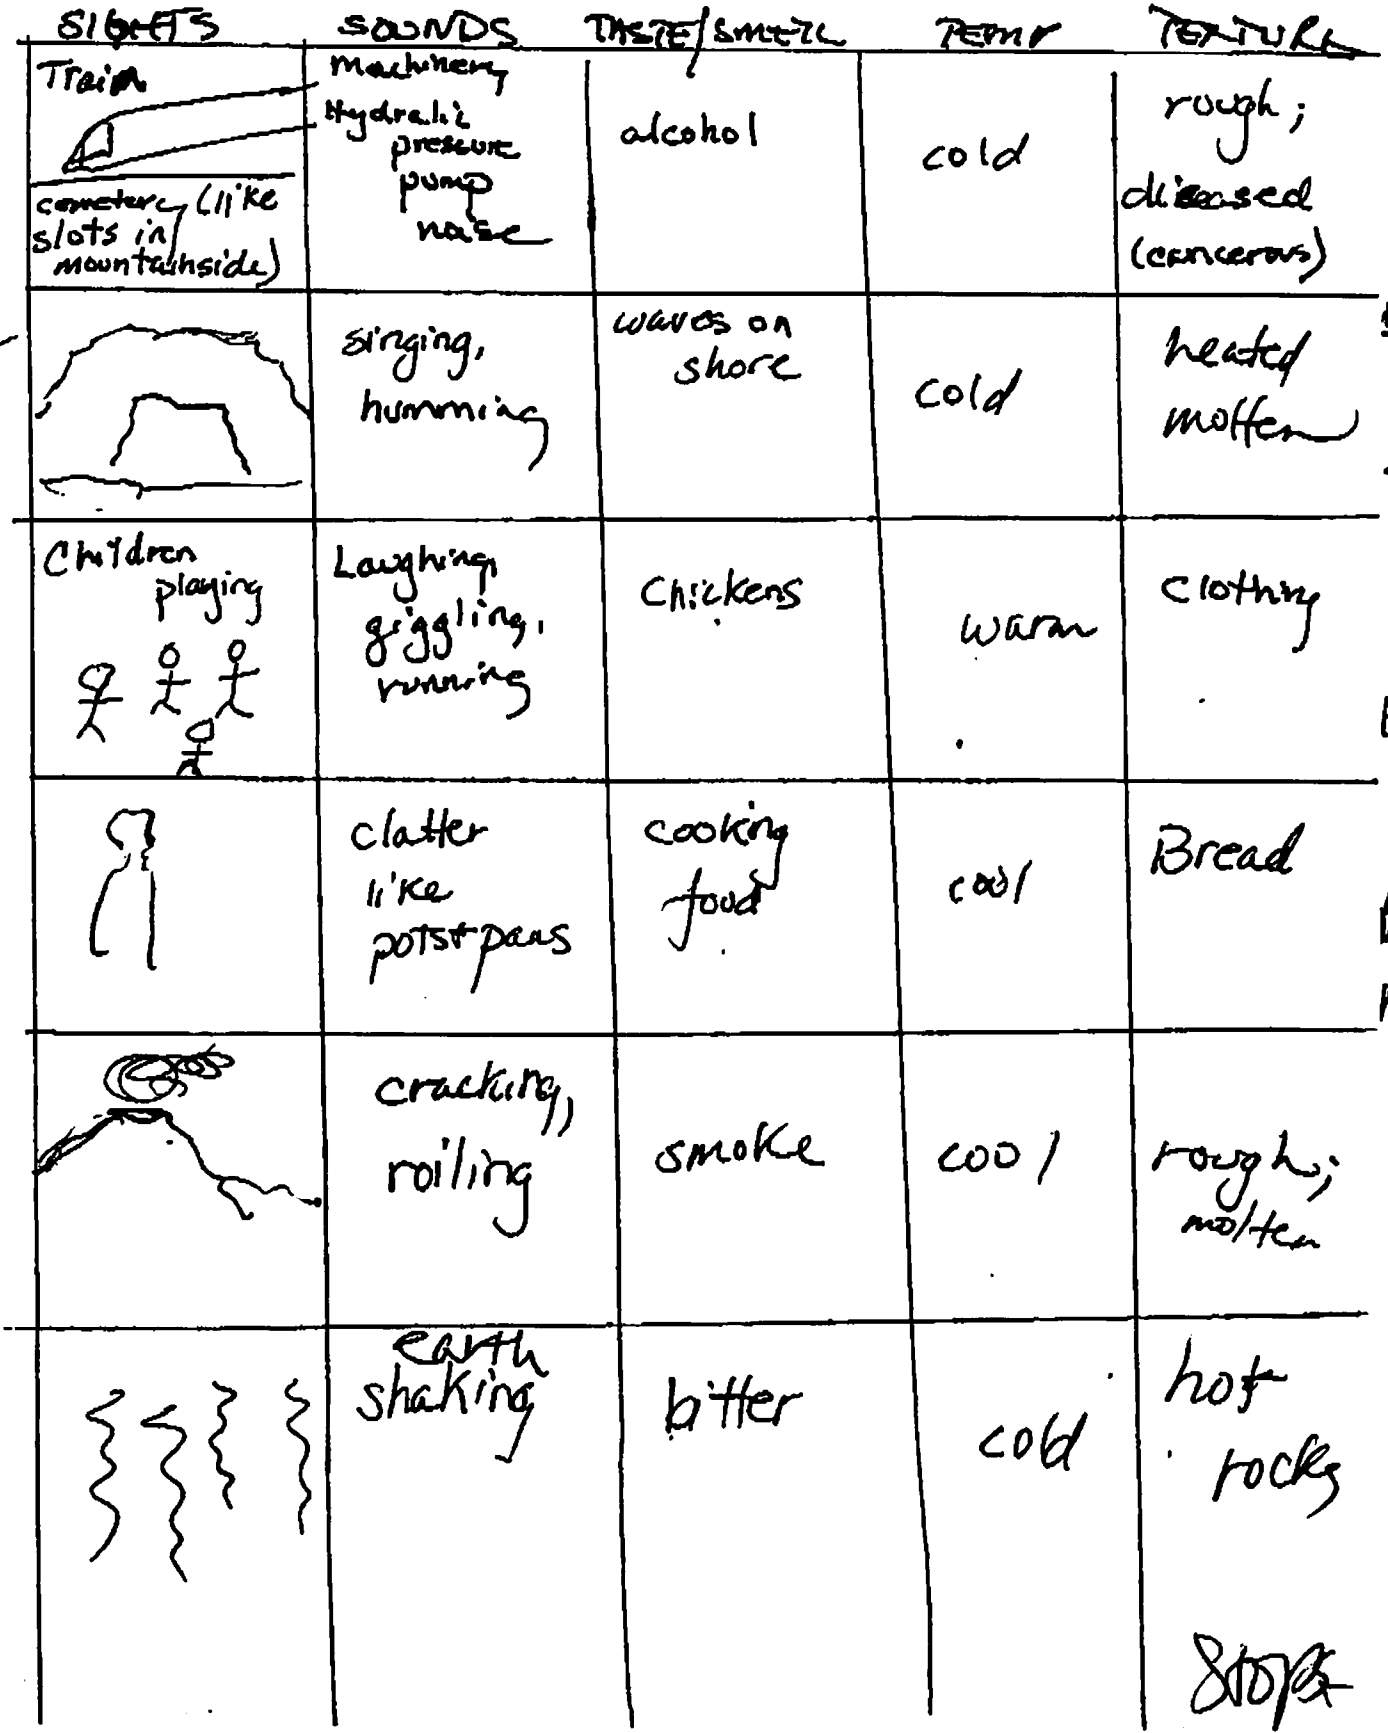 SIGHTS SOUNDS TASTE/SMELL TEMP TEXTURE
Train
cemetery (like
slots in
mountainside)
Machinery
Hydralic
pressure
pump
noise
alcohol
cold
rough;
diseased
(cancerous)
singing,
humming
waves on
shore
cold
heated
molten
Children
playing
Laughing,
giggling,
running
Chickens
warm
Clothing
clatter
like
pots+pans
cooking
food
cool
Bread
cracking,
roiling
smoke
cool
rough;
molten
earth
shaking
bitter
cold
hot
rocks